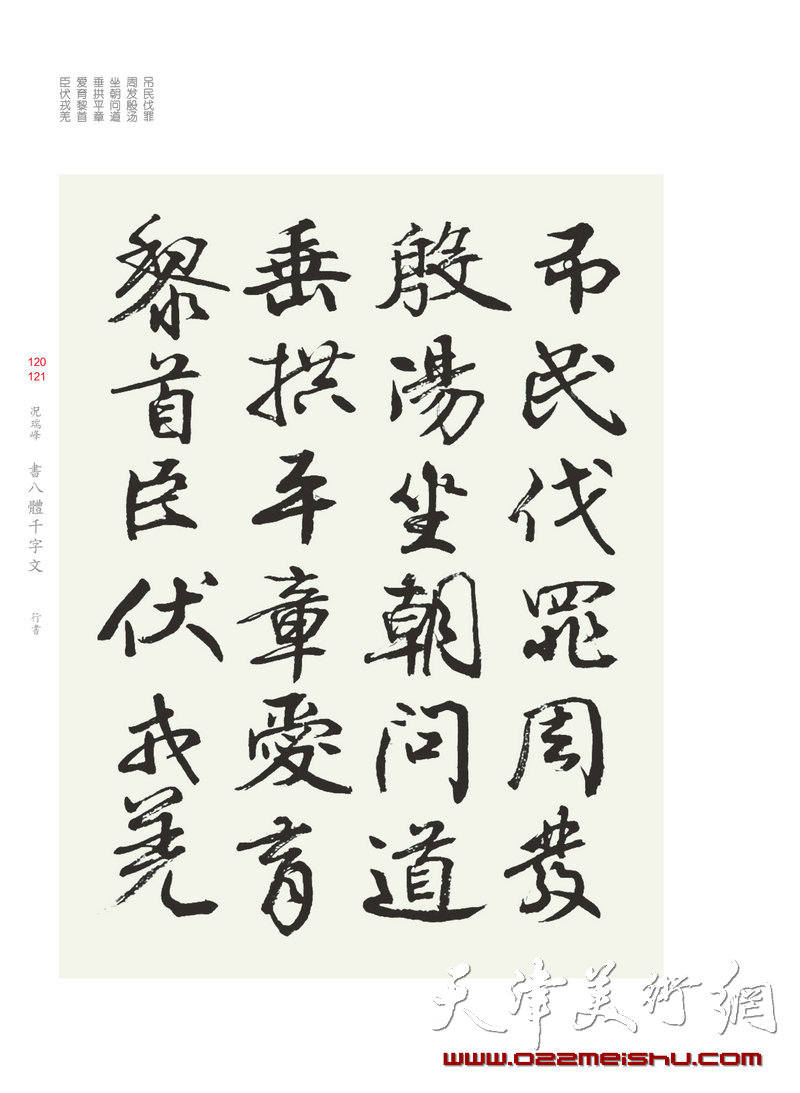 吊民伐罪
周发殷汤
坐朝问道
垂拱平章
爱育黎首
臣伏戎羌
弔民伐罪周發
殷湯坐朝问道
垂拱平章愛育
黎首臣伏戎羌
120
121
况瑞峰
書八體千字文
行書
天津美術網
www.022meishu.com